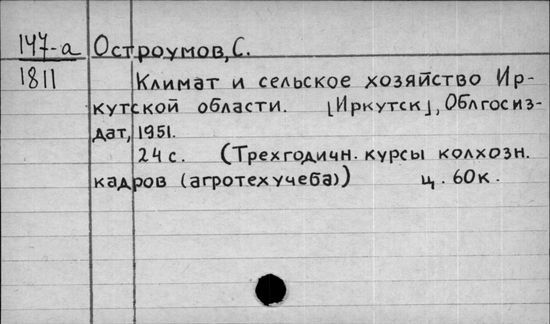 147-а Остроумов, С.
1811 Климат и сельское хозяйство Ир-
кутской области. [Иркутск], Облгосиз-
дат, 1951.
24 с. (Трехгодичн. курсы колхозн.
кадров (агротехучеба)) ц. 60к.